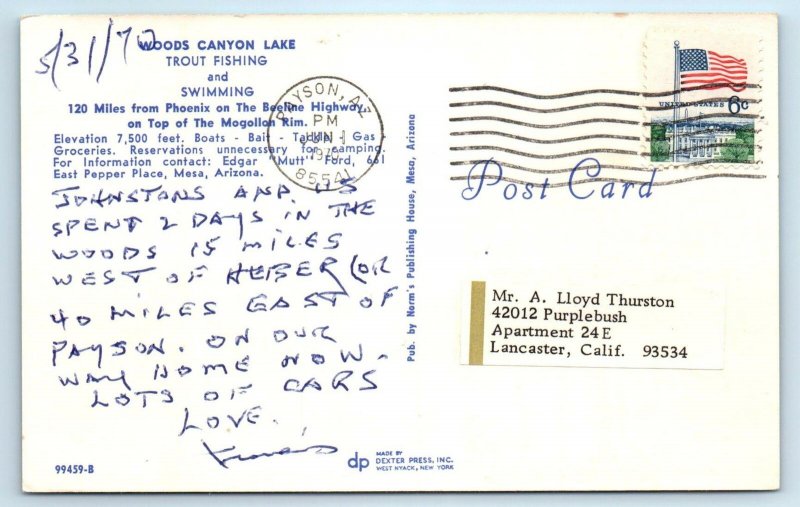 5/31/70
WOODS CANYON LAKE
TROUT FISHING
and
SWIMMING
120 Miles from Phoenix on The Beeline Highway,
on Top of The Mogollon Rim.
Elevation 7,500 feet. Boats - Bait - Tackle - Gas
Groceries. Reservations unnecessary for camping.
For Information contact: Edgar "Mutt" Ford, 661
East Pepper Place, Mesa, Arizona.
PAYSON, AZ
PM
JUN 1
85541
UNITED STATES 6c
Post Card
JOHNSTONS AND US
SPENT 2 DAYS IN THE
WOODS 15 MILES
WEST OF HEBER (OR
40 MILES EAST OF
PAYSON. ON OUR
WAY HOME NOW.
LOTS OF CARS
LOVE.
Pub. by Norm's Publishing House, Mesa, Arizona
Mr. A. Lloyd Thurston
42012 Purplebush
Apartment 24E
Lancaster, Calif. 93534
99459-B
dp
MADE BY
DEXTER PRESS, INC.
WEST NYACK, NEW YORK